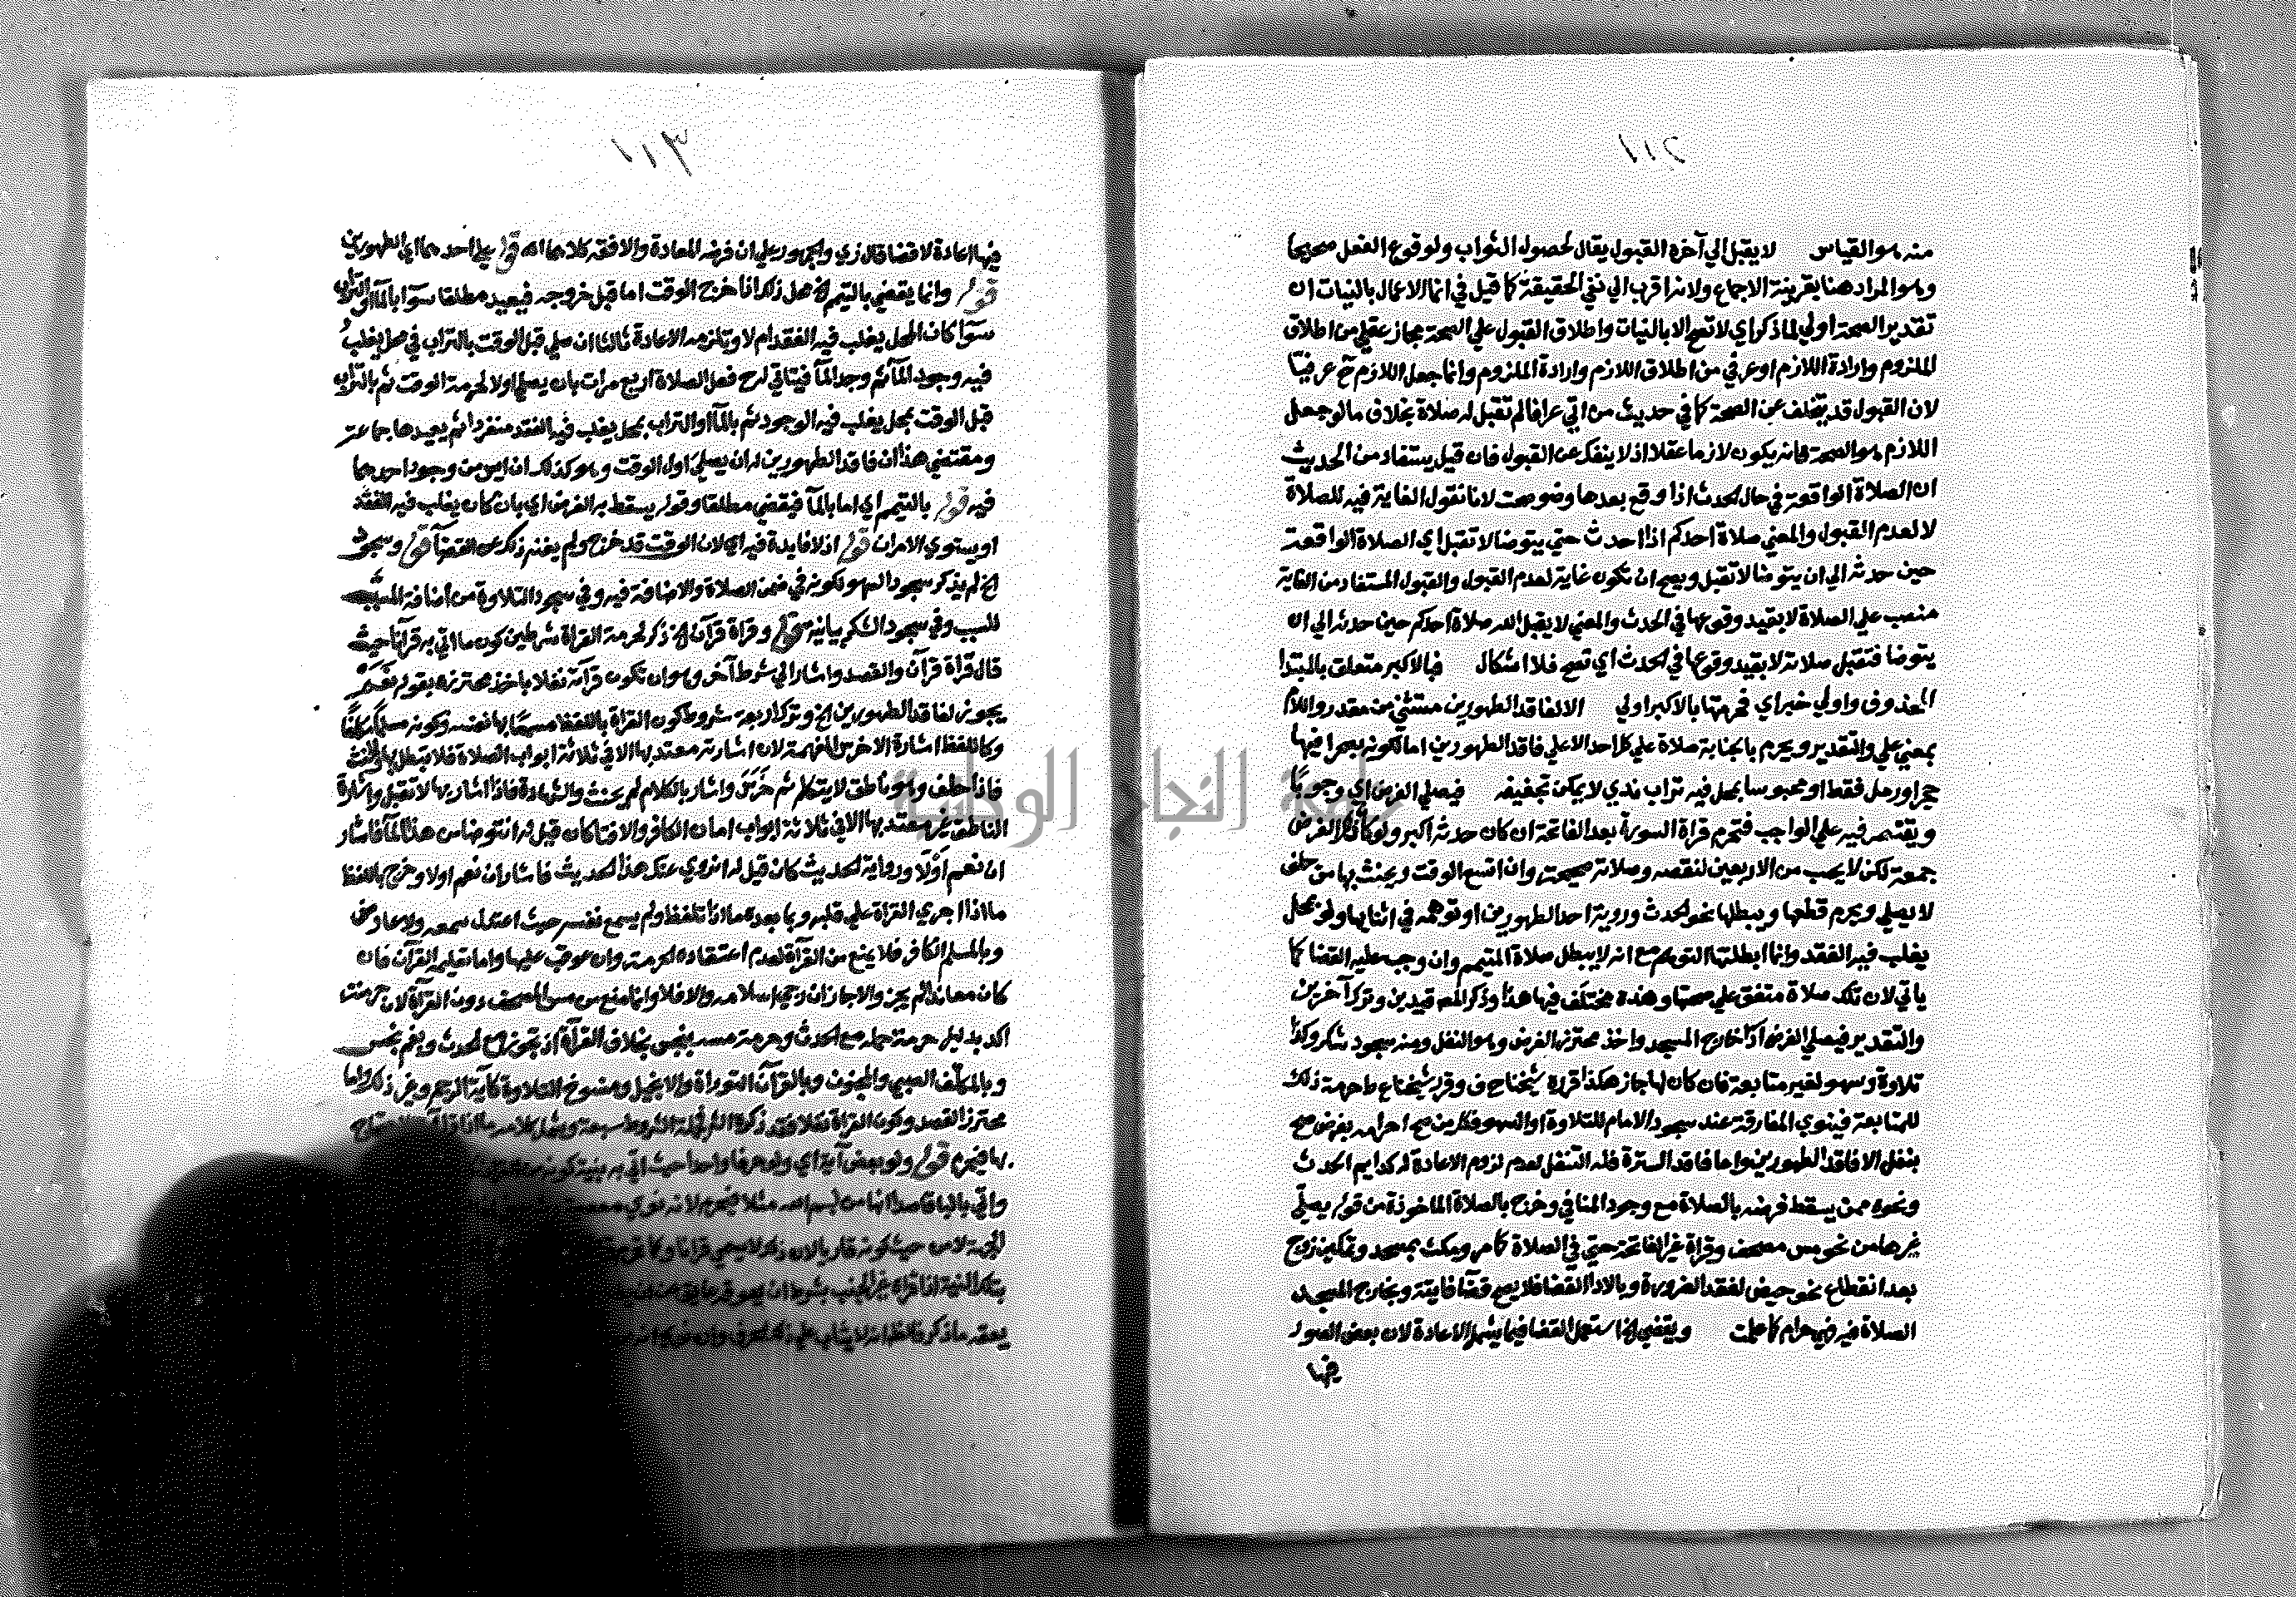 ١١٢
منه وهو القياس لا يقبل الي آخره القبول يقال لحصول الثواب ولوقوع الفعل صحيحا
وهو المراد هنا بقرينة الاجماع ولانه اقرب الي نفي الحقيقة كما قيل في انما الاعمال بالنيات ان
تقدير الصحة اولي لما ذكر اي لا تصح الا بالنيات واطلاق القبول علي الصحة مجاز عقلي من اطلاق
الملزوم وارادة اللازم او عرفي من اطلاق اللازم وارادة الملزوم وانما جعل اللازم ح عرفيا
لان القبول قد يتخلف عن الصحة كما في حديث من اتي عرافا لم تقبل له صلاة بخلاف ما لو جعل
اللازم هو الصحة فانه يكون لازما عقلا اذ لا ينفك عن القبول فان قيل يستفاد من الحديث
ان الصلاة الواقعة في حال الحدث اذا وقع بعدها وضو صحت لانا نقول الغاية فيه للصلاة
لا لعدم القبول والمعني صلاة احدكم اذا احدث حتي يتوضا لا تقبل اي الصلاة الواقعة
حين حدثه الي ان يتوضا لا تقبل ويصح ان تكون غاية لعدم القبول والقبول المستفاد من الغاية
منصب علي الصلاة لا بقيد وقوعها في الحدث والمعني لا يقبل الله صلاة احدكم حين حدثه الي ان
يتوضا فتقبل صلاته لا بقيد وقوعها في الحدث اي تصح فلا اشكال فبالاكبر متعلق بالمبتدا
المحذوف واولي خبر اي فحرمتها بالاكبر اولي الا لفاقد الطهورين مستثني من مقدر واللام
بمعني علي والتقدير ويحرم بالجنابة صلاة علي كل احد الا علي فاقد الطهورين اما لكونه بصحرا فيها
حجر او رمل فقط او محبوسا بمحل فيه تراب ندي لا يمكن تجفيفه فيصلي الفرض اي وجوبا
ويقتصر فيه علي الواجب فتحرم قراة السورة بعد الفاتحة ان كان حدثه اكبر ولو كان الفرض
جمعة لكن لا يحسب من الاربعين لنقصه وصلاته صحيحة وان اتسع الوقت ويحنث بها من حلف
لا يصلي ويحرم قطعها ويبطلها نحو الحدث وروية احد الطهورين او توهمه في اثنايها ولو بمحل
يغلب فيه الفقد وانما ابطلتها التوهم مع انه لا يبطل صلاة المتيمم وان وجب عليه القضا كما
ياتي لان تلك صلاة متفق علي صحتها وهذه مختلف فيها هذا وذكر المص قيدين وترك آخرين
والتقدير فيصلي الفرض اداء خارج المسجد واخذ محترز الفرض وهو النفل ومنه سجود شكر وكذا
تلاوة وسهو لغير متابعة فان كان لها جاز هكذا قرره شيخنا ح ف وقرر شيخنا ع ط حرمة ذلك
للمتابعة فينوي المفارقة عند سجود الامام للتلاوة او السهو فكل من صح احرامه بفرض صح
بنفل الا فاقد الطهورين واما فاقد السترة فله التنفل لعدم لزوم الاعادة له كدايم الحدث
ونحوه ممن يسقط فرضه بالصلاة مع وجود المنافي وخرج بالصلاة الماخوذة من قوله يصلي
غيرها من نحو مس مصحف وقراة غير الفاتحة حتي في الصلاة كما مر ومكث بمسجد وتمكين زوج
بعد انقطاع نحو حيض لفقد الضرورة وبالادا القضا فلا يصح قضا فايتة وبخارج المسجد
الصلاة فيه فهي حرام كما علمت ويقضي الخ استعمل القضا فيما يشمل الاعادة لان بعض الصور
فيها
١١٣
فيها اعادة لا قضا قال زي والجمهور علي ان فرضه المعادة والافقه كلاهما اه قوله علي احدهما اي الطهورين
قوله وانما يقضي بالتيمم الخ محل ذلك اذا خرج الوقت اما قبل خروجه فيعيد مطلقا سوا بالماء او التراب
سوا كان المحل يغلب فيه الفقد ام لا ويلزمه الاعادة ثالثا ان صلي قبل الوقت بالتراب في محل يغلب
فيه وجود الماء ثم وجد الماء فيتاتي لرح فعل الصلاة اربع مرات بان يصلي اولا لحرمة الوقت ثم بالتراب
قبل الوقت بمحل يغلب فيه الوجود ثم بالماء او التراب بمحل يغلب فيه الفقد منفردا ثم يعيدها جماعة
ومقتضي هذا ان فاقد الطهورين له ان يصلي اول الوقت وهو كذلك ان ايس من وجود احدهما
فيه قوله بالتيمم اي اما بالماء فيقضي مطلقا وقوله يسقط به الفرض اي بان كان يغلب فيه الفقد
او يستوي الامران قوله اذ لا فايدة فيه اي لان الوقت قد خرج ولم يغنه ذلك عن القضا قوله وسجود
الخ لم يذكر سجود السهو لكونه في ضمن الصلاة والاضافة فيه وفي سجود التلاوة من اضافة المسبب
للسبب وفي سجود الشكر بيانية قوله وقراة قرآن الخ ذكر لحرمة القراة شرطين كون ما اتي به قرآنا حيث
قال قراة قرآن والقصد واشار الي شرط آخر وهو ان تكون قراته نفلا باخذ محترزه بقوله
يجوز لفاقد الطهورين الخ وترك اربعة شروط كون القراة باللفظ مسمعا بها نفسه وكونه مسلما مكلفا
وكاللفظ اشارة الاخرس المفهمة لان اشارته معتد بها الا في ثلاثة ابواب الصلاة فلا تبطل بها والحنث
فاذا حلف وهو ناطق لا يتكلم ثم خرس واشار بالكلام لم يحنث والشهادة فاذا اشار بها لا تقبل واشارة
الناطق غير معتد بها الا في ثلاثة ابواب امان الكافر والافتا كان قيل له انتوضا من هذا الماء فاشار
ان نعم او لا ورواية الحديث كان قيل له انروي عنك هذا الحديث فاشار ان نعم او لا وخرج باللفظ
ما اذا اجري القراة علي قلبه وبما بعده ما اذا تلفظ ولم يسمع نفسه حيث اعتدل سمعه ولا عارض
وبالمسلم الكافر فلا يمنع من القراة لعدم اعتقاده الحرمة وان عوقب عليها واما تعليمه القرآن فان
كان معاندا لم يجز والا جاز ان رجي اسلامه والا فلا وانما منع من مس المصحف دون القراة لان حرمته
اكد بدليل حرمة حمله مع الحدث وحرمة مسه بنجس بخلاف القراة اذ تجوز مع الحدث وبفم نجس
وبالمكلف الصبي والمجنون وبالقرآن التوراة والانجيل ومنسوخ التلاوة كآية الرجم وغير ذلك واما
محترز القصد وكون القراة نفلا فقد ذكره الش فجملة الشروط سبعة وشمل كلامه ما اذا
بها فيحرم قوله ولو بعض آية اي ولو حرفا واحدا حيث اتي به بنية كونه من
واتي بالبا قاصدا انها من بسم الله مثلا فيحرم لانه نوي معصية
لا من حيث كونه قار يا لان ذلك لا يسمي قرانا
بتلك النية اذا قراه غير الجنب بشرط ان
بعقد ما ذكر